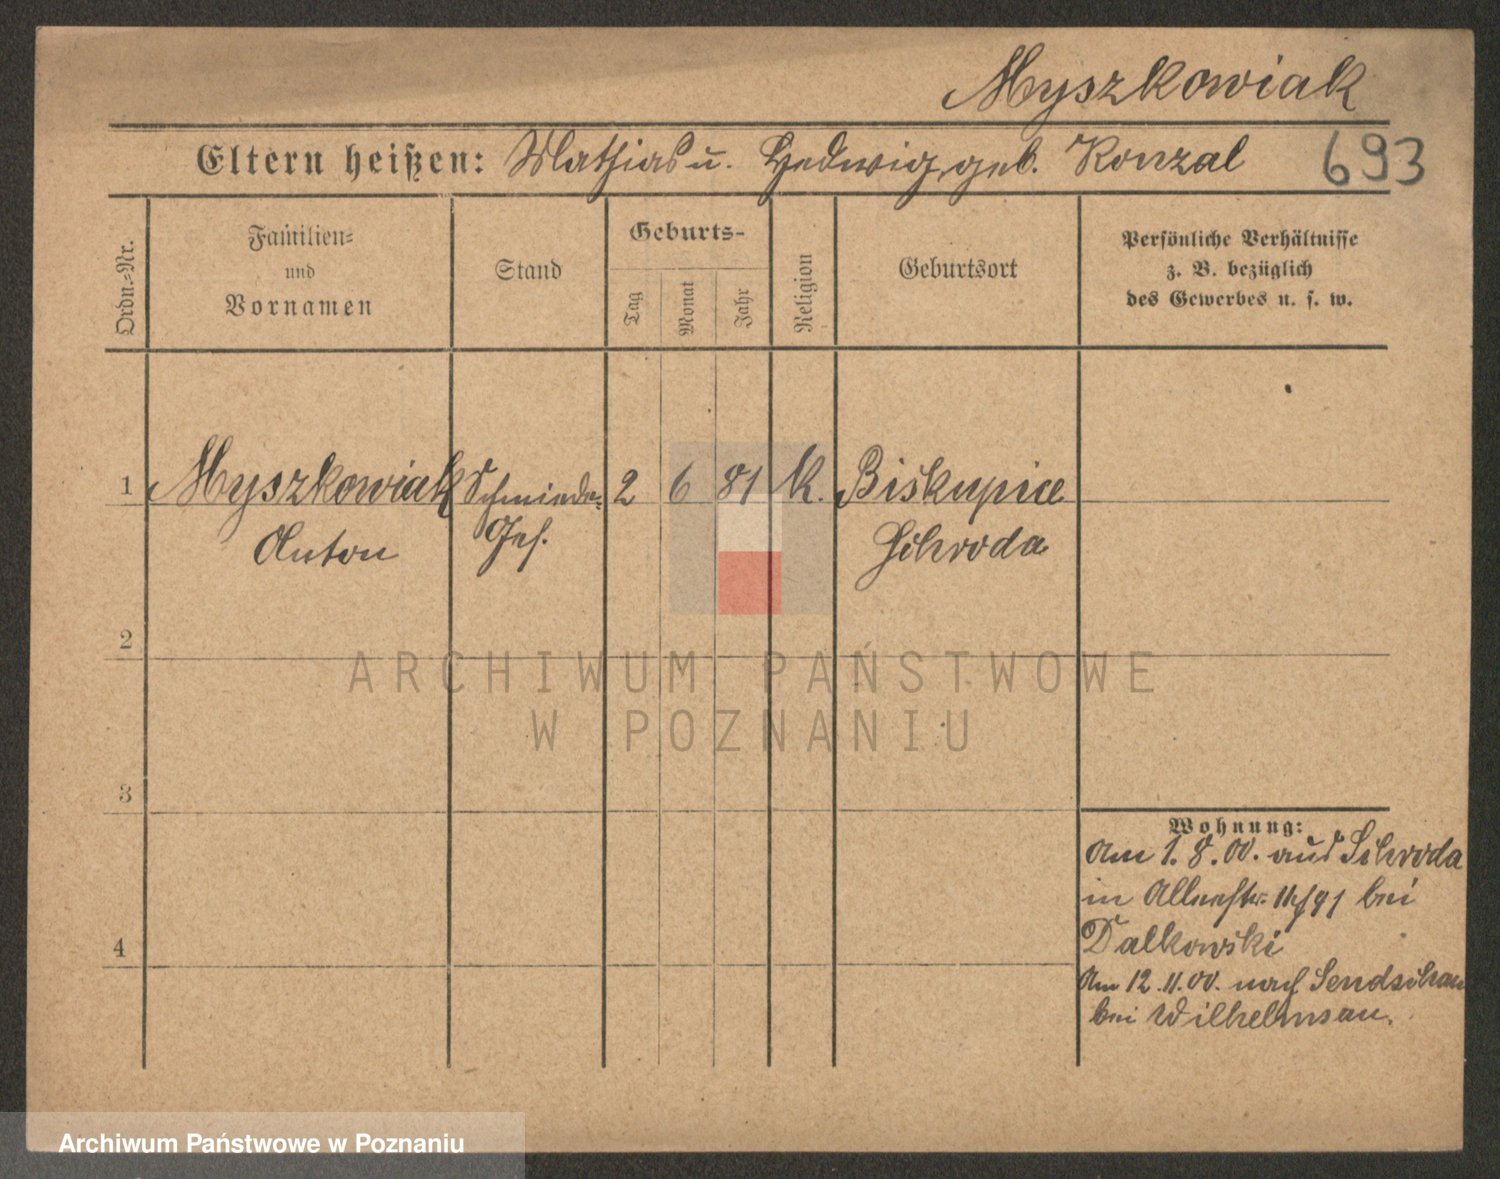 Myszkowiak
Eltern heißen: Mathias u. Hedwig, geb. Konzal
693
Ordn.=Nr.
Familien=
und
Vornamen
Stand
Geburts-
Tag
Monat
Jahr
Religion
Geburtsort
Persönliche Verhältnisse
z. B. bezüglich
des Gewerbes u. s. w.
1 Myszkowiak Schmiede= 2 6 81 K. Biskupice
Anton Ges. Schroda
2
ARCHIWUM PAŃSTWOWE
W POZNANIU
3
Wohnung:
Am 1.8.00. aus Schroda
in bei
Dalkowski
4
Am 12.11.00. nach Sendschau
bei Wilhelmsau.
Archiwum Państwowe w Poznaniu